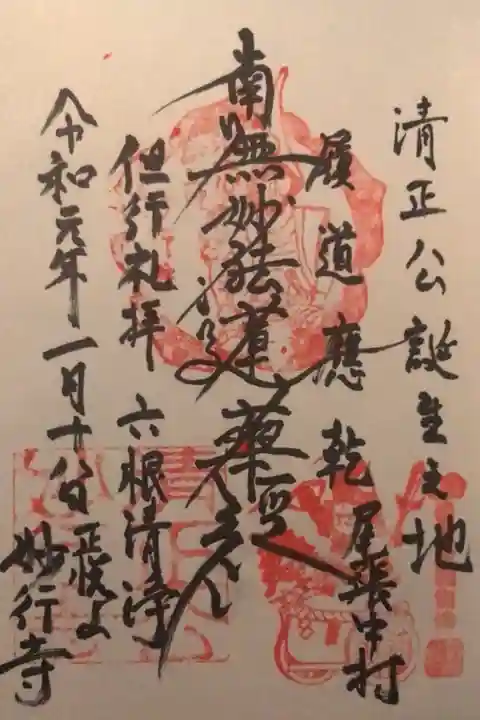 清正公誕生之地
尾張中村
履道應乾
南無妙法蓮華経
但行礼拝 六根清浄
令和元年一月十
妙行寺